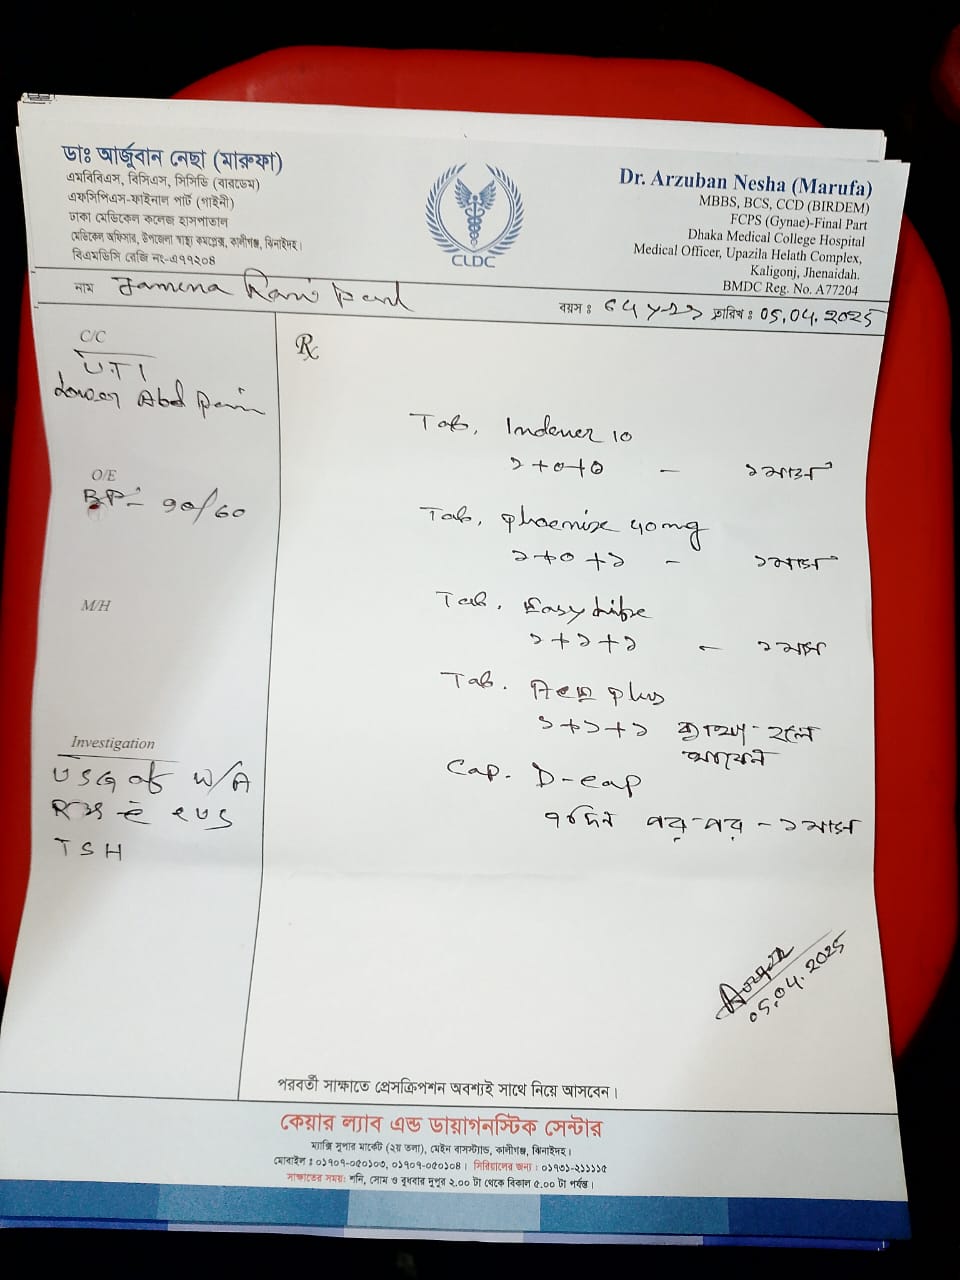 ডাঃ আর্জুবান নেছা (মারুফা)
এমবিবিএস, বিসিএস, সিসিডি (বারডেম)
এফসিপিএস-ফাইনাল পার্ট (গাইনী)
ঢাকা মেডিকেল কলেজ হাসপাতাল
মেডিকেল অফিসার, উপজেলা স্বাস্থ্য কমপ্লেক্স, কালীগঞ্জ, ঝিনাইদহ।
বিএমডিসি রেজি নং-এ৭৭২০৪
CLDC
Dr. Arzuban Nesha (Marufa)
MBBS, BCS, CCD (BIRDEM)
FCPS (Gynae)-Final Part
Dhaka Medical College Hospital
Medical Officer, Upazila Helath Complex,
Kaligonj, Jhenaidah.
BMDC Reg. No. A77204
নাম Jamena Rani
বয়স : তারিখ : 05.04.2025
C/C
UTI
Lower Abd Pain
O/E
BP- 90/60
M/H
Investigation
USG of W/A
TSH
Rx
Tab. Indever 10
১+০+০ - ১মাস
Tab. 40mg
১+০+১ - ১মাস
Tab.
১+১+১ - ১মাস
Tab. plus
১+১+১ ব্যথা হলে
খাবেন
Cap. D-cap
৭ দিন পর-পর - ১ মাস
05.04.2025
পরবর্তী সাক্ষাতে প্রেসক্রিপশন অবশ্যই সাথে নিয়ে আসবেন।
কেয়ার ল্যাব এন্ড ডায়াগনস্টিক সেন্টার
ম্যাক্সি সুপার মার্কেট (২য় তলা), মেইন বাসস্ট্যান্ড, কালীগঞ্জ, ঝিনাইদহ।
মোবাইল : ০১৭০৭-০৫০১০৩, ০১৭০৭-০৫০১০৪। সিরিয়ালের জন্য : ০১৭৩১-২১১১১৫
সাক্ষাতের সময়: শনি, সোম ও বুধবার দুপুর ২.০০ টা থেকে বিকাল ৫.০০ টা পর্যন্ত।